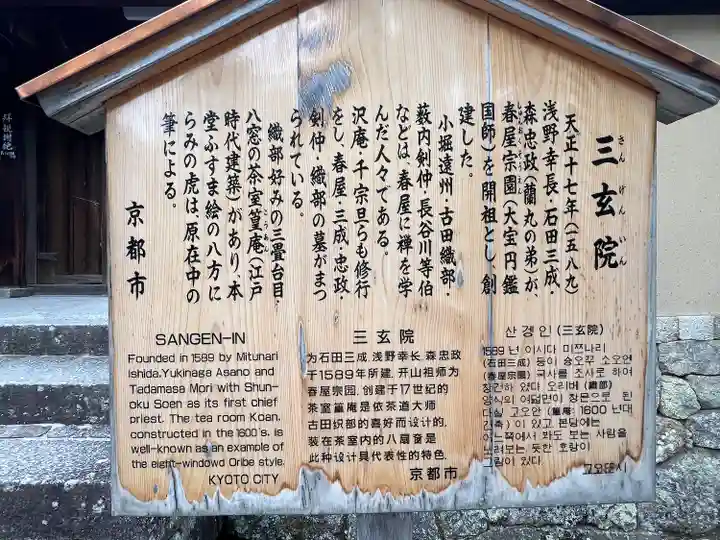 三玄院
さんげんいん
天正十七年(一五八九)
浅野幸長・石田三成・
森忠政(蘭丸の弟)が、
春屋宗園(大宝円鑑
国師)を開祖とし、創
建した。
小堀遠州・古田織部・
薮内剣仲・長谷川等伯
などは、春屋に禅を学
んだ人々である。
沢庵・千宗旦らも修行
をし、春屋・三成・忠政・
剣仲・織部の墓がまつ
られている。
織部好みの三畳台目・
八窓の茶室篁庵(江戸
時代建築)があり、本
堂ふすま絵の八方に
らみの虎は、原在中の
筆による。
京都市
SANGEN-IN
Founded in 1589 by Mitunari
Ishida,Yukinaga Asano and
Tadamasa Mori with Shun-
oku Soen as its first chief
priest. The tea room Koan,
constructed in the 1600's, is
well-known as an example of
the eight-windowd Oribe style.
KYOTO CITY
三玄院
为石田三成 浅野幸长 森忠政
于1589年所建. 开山祖师为
春屋宗园. 创建于17世纪的
茶室篁庵是依茶道大师
古田织部的喜好而设计的.
装在茶室内的八扇窗是
此种设计具代表性的特色.
京都市
산겡인 (三玄院)
1589 년 이시다 미쯔나리
(石田三成) 등이 슝오꾸 소오엔
(春屋宗園) 국사를 조사로 하여
창건하 였다. 오리베 (織部)
양식의 여덟면이 창문으로 된
다실 고오안 (篁庵: 1600 년대
건축) 이 있고 본당에는
어느쪽에서 봐도 보는 사람을
노려보는 듯한 호랑이
그림이 있다.
拝観謝絶